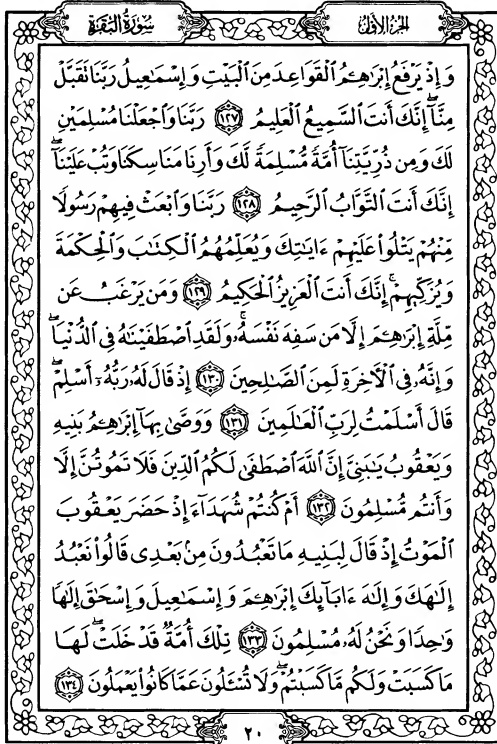 سُورَةُ البَقَرَةِ الجُزءُ الأوَّلُ
وَإِذْ يَرْفَعُ إِبْرَٰهِـۧمُ ٱلْقَوَاعِدَ مِنَ ٱلْبَيْتِ وَإِسْمَٰعِيلُ رَبَّنَا تَقَبَّلْ
مِنَّآ ۖ إِنَّكَ أَنتَ ٱلسَّمِيعُ ٱلْعَلِيمُ ١٢٧ رَبَّنَا وَٱجْعَلْنَا مُسْلِمَيْنِ
لَكَ وَمِن ذُرِّيَّتِنَآ أُمَّةً مُّسْلِمَةً لَّكَ وَأَرِنَا مَنَاسِكَنَا وَتُبْ عَلَيْنَآ ۖ
إِنَّكَ أَنتَ ٱلتَّوَّابُ ٱلرَّحِيمُ ١٢٨ رَبَّنَا وَٱبْعَثْ فِيهِمْ رَسُولًا
مِّنْهُمْ يَتْلُوا۟ عَلَيْهِمْ ءَايَٰتِكَ وَيُعَلِّمُهُمُ ٱلْكِتَٰبَ وَٱلْحِكْمَةَ
وَيُزَكِّيهِمْ ۚ إِنَّكَ أَنتَ ٱلْعَزِيزُ ٱلْحَكِيمُ ١٢٩ وَمَن يَرْغَبُ عَن
مِّلَّةِ إِبْرَٰهِـۧمَ إِلَّا مَن سَفِهَ نَفْسَهُۥ ۚ وَلَقَدِ ٱصْطَفَيْنَٰهُ فِى ٱلدُّنْيَا ۖ
وَإِنَّهُۥ فِى ٱلْءَاخِرَةِ لَمِنَ ٱلصَّٰلِحِينَ ١٣٠ إِذْ قَالَ لَهُۥ رَبُّهُۥٓ أَسْلِمْ ۖ
قَالَ أَسْلَمْتُ لِرَبِّ ٱلْعَٰلَمِينَ ١٣١ وَوَصَّىٰ بِهَآ إِبْرَٰهِـۧمُ بَنِيهِ
وَيَعْقُوبُ يَٰبَنِىَّ إِنَّ ٱللَّهَ ٱصْطَفَىٰ لَكُمُ ٱلدِّينَ فَلَا تَمُوتُنَّ إِلَّا
وَأَنتُم مُّسْلِمُونَ ١٣٢ أَمْ كُنتُمْ شُهَدَآءَ إِذْ حَضَرَ يَعْقُوبَ
ٱلْمَوْتُ إِذْ قَالَ لِبَنِيهِ مَا تَعْبُدُونَ مِنۢ بَعْدِى قَالُوا۟ نَعْبُدُ
إِلَٰهَكَ وَإِلَٰهَ ءَابَآئِكَ إِبْرَٰهِـۧمَ وَإِسْمَٰعِيلَ وَإِسْحَٰقَ إِلَٰهًا
وَٰحِدًا وَنَحْنُ لَهُۥ مُسْلِمُونَ ١٣٣ تِلْكَ أُمَّةٌ قَدْ خَلَتْ ۖ لَهَا
مَا كَسَبَتْ وَلَكُم مَّا كَسَبْتُمْ ۖ وَلَا تُسْـَٔلُونَ عَمَّا كَانُوا۟ يَعْمَلُونَ ١٣٤
٢٠